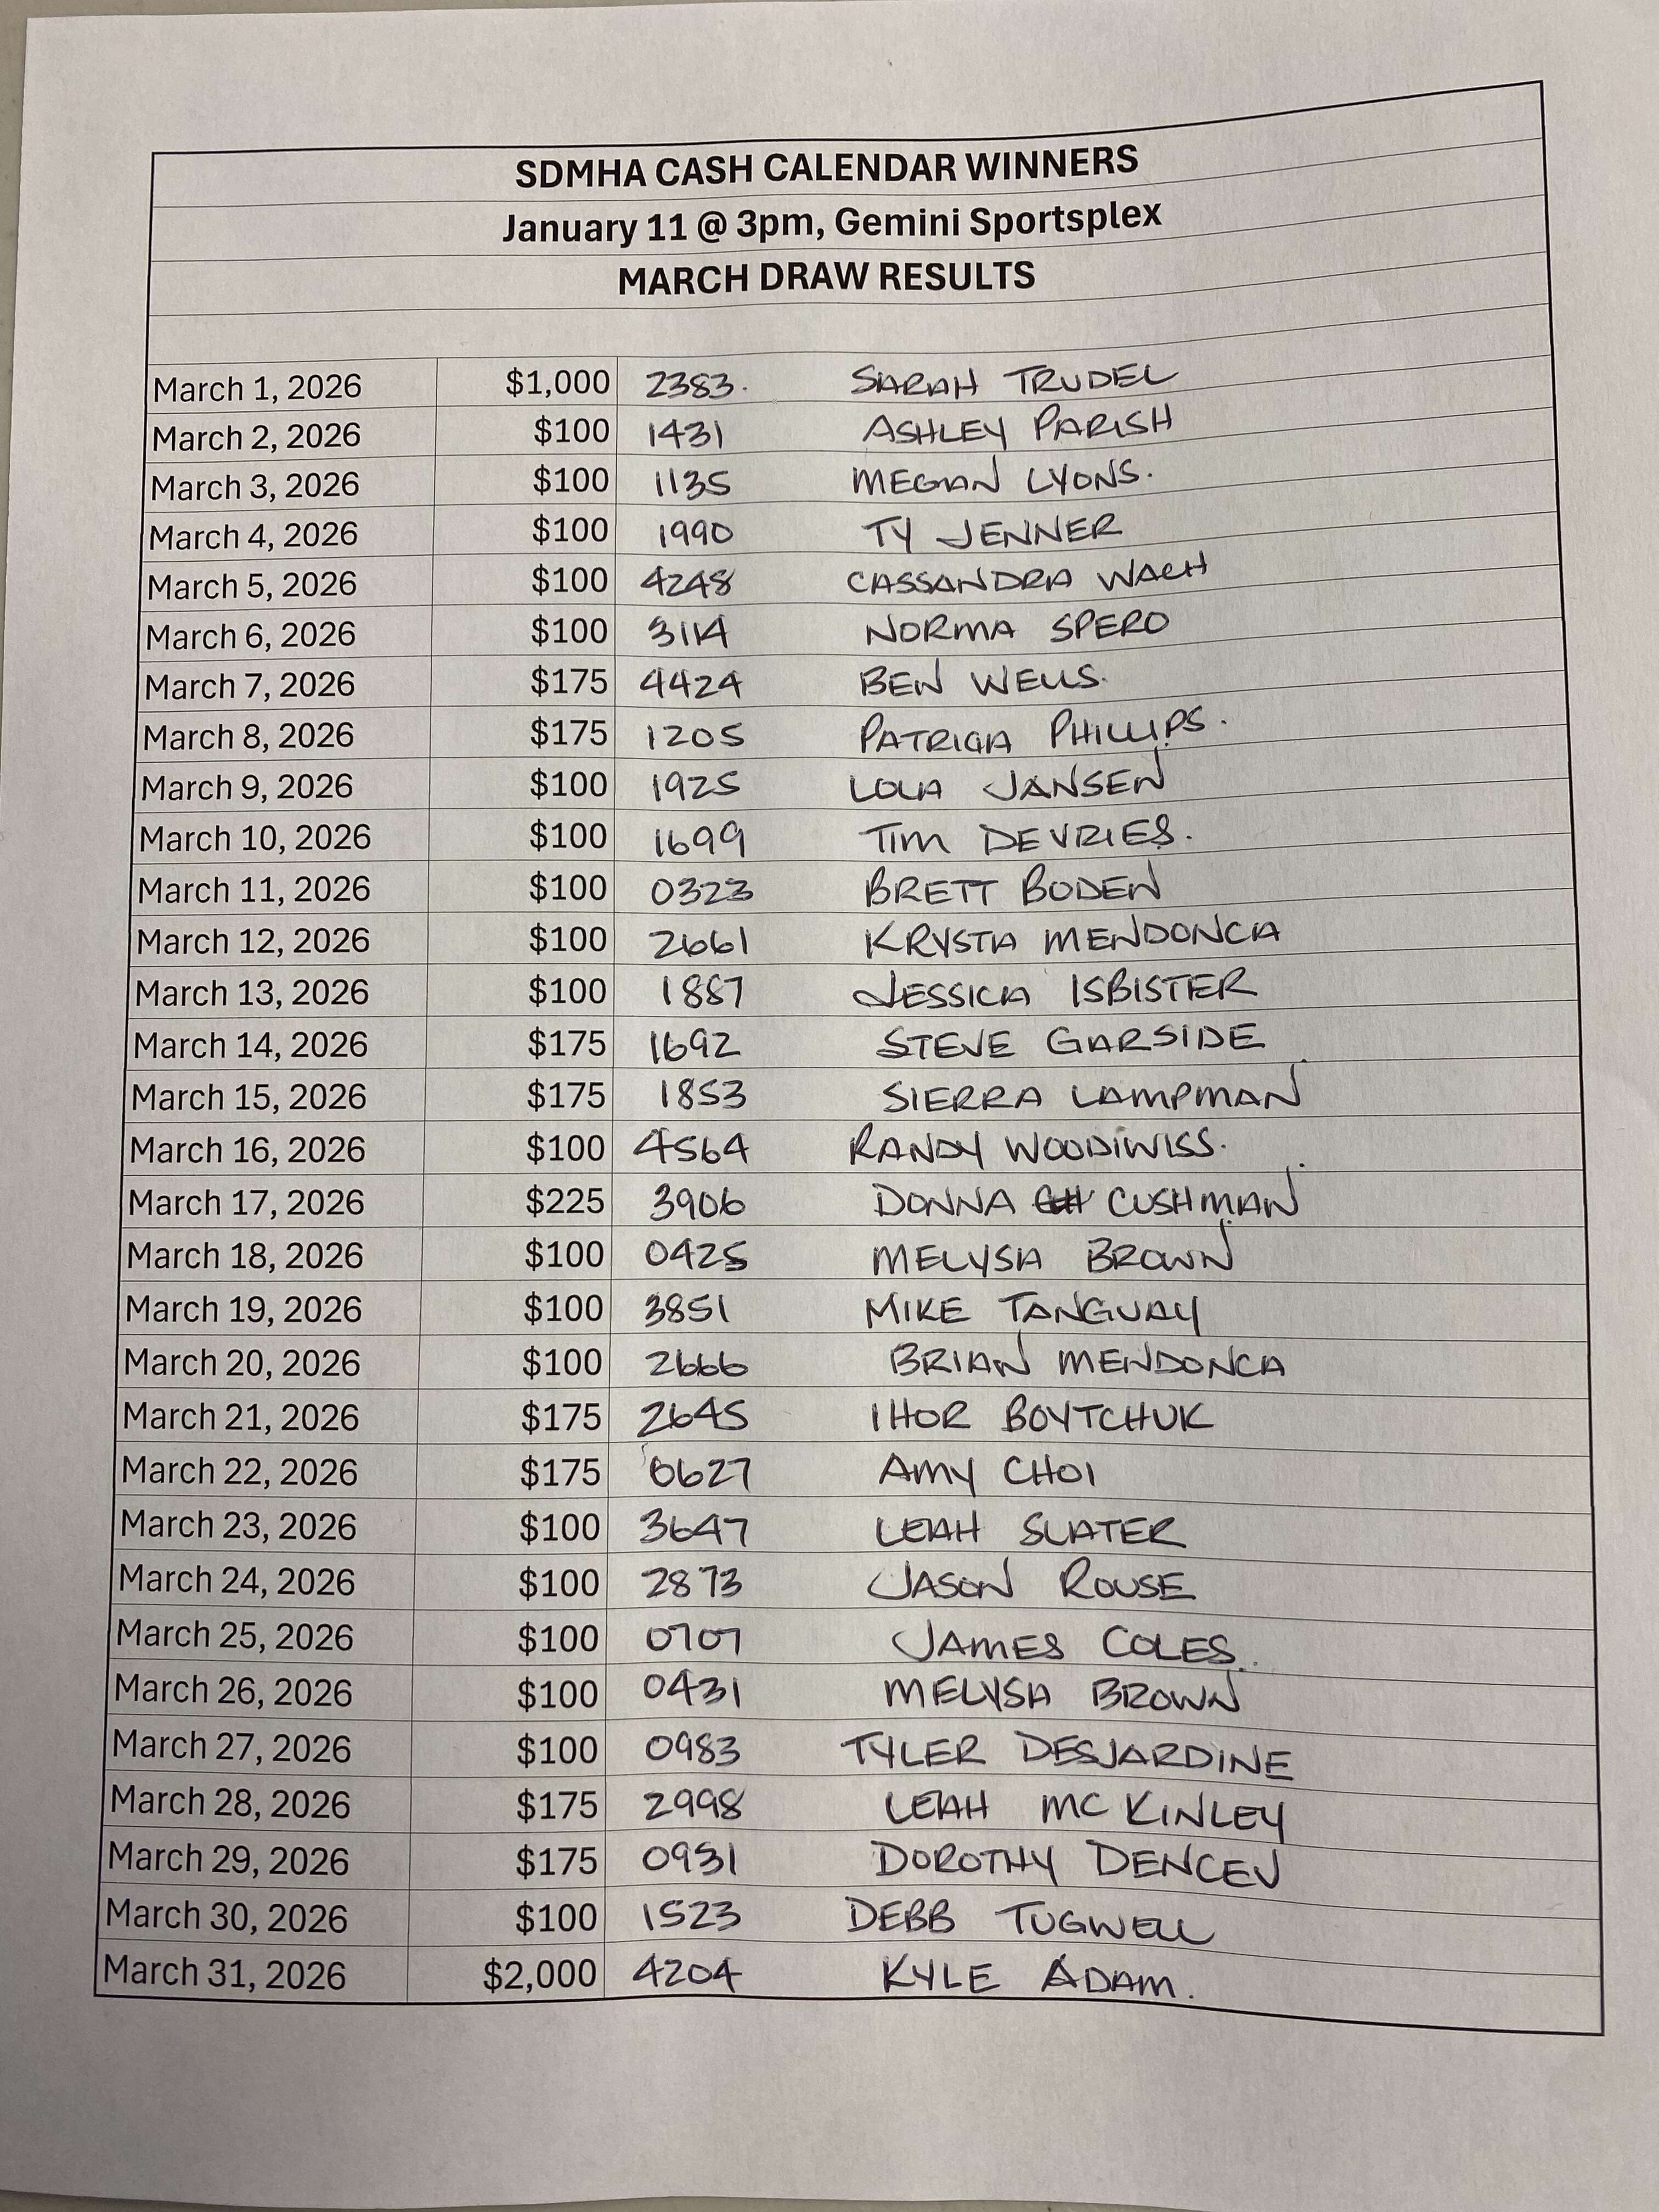 SDMHA CASH CALENDAR WINNERS
January 11 @ 3pm, Gemini Sportsplex
MARCH DRAW RESULTS
March 1, 2026 $1,000 2383. SARAH TRUDEL
March 2, 2026 $100 1431 ASHLEY PARISH
March 3, 2026 $100 1135 MEGAN LYONS.
March 4, 2026 $100 1990 TY JENNER
March 5, 2026 $100 4248 CASSANDRA WACH
March 6, 2026 $100 3114 NORMA SPERO
March 7, 2026 $175 4424 BEN WELLS.
March 8, 2026 $175 1205 PATRICIA PHILLIPS.
March 9, 2026 $100 1925 LOLA JANSEN
March 10, 2026 $100 1699 TIM DEVRIES.
March 11, 2026 $100 0323 BRETT BODEN
March 12, 2026 $100 2661 KRYSTA MENDONCA
March 13, 2026 $100 1887 JESSICA ISBISTER
March 14, 2026 $175 1692 STEVE GARSIDE
March 15, 2026 $175 1853 SIERRA LAMPMAN
March 16, 2026 $100 4564 RANDY WOODIWISS.
March 17, 2026 $225 3906 DONNA CUSHMAN
March 18, 2026 $100 0425 MELYSA BROWN
March 19, 2026 $100 3851 MIKE TANGUAY
March 20, 2026 $100 2666 BRIAN MENDONCA
March 21, 2026 $175 2645 IHOR BOYTCHUK
March 22, 2026 $175 0627 AMY CHOI
March 23, 2026 $100 3647 LEAH SLATER
March 24, 2026 $100 2873 JASON ROUSE
March 25, 2026 $100 0707 JAMES COLES.
March 26, 2026 $100 0431 MELYSA BROWN
March 27, 2026 $100 0983 TYLER DESJARDINE
March 28, 2026 $175 2998 LEAH MC KINLEY
March 29, 2026 $175 0931 DOROTHY
March 30, 2026 $100 1523 DEBB TUGWELL
March 31, 2026 $2,000 4204 KYLE ADAM.